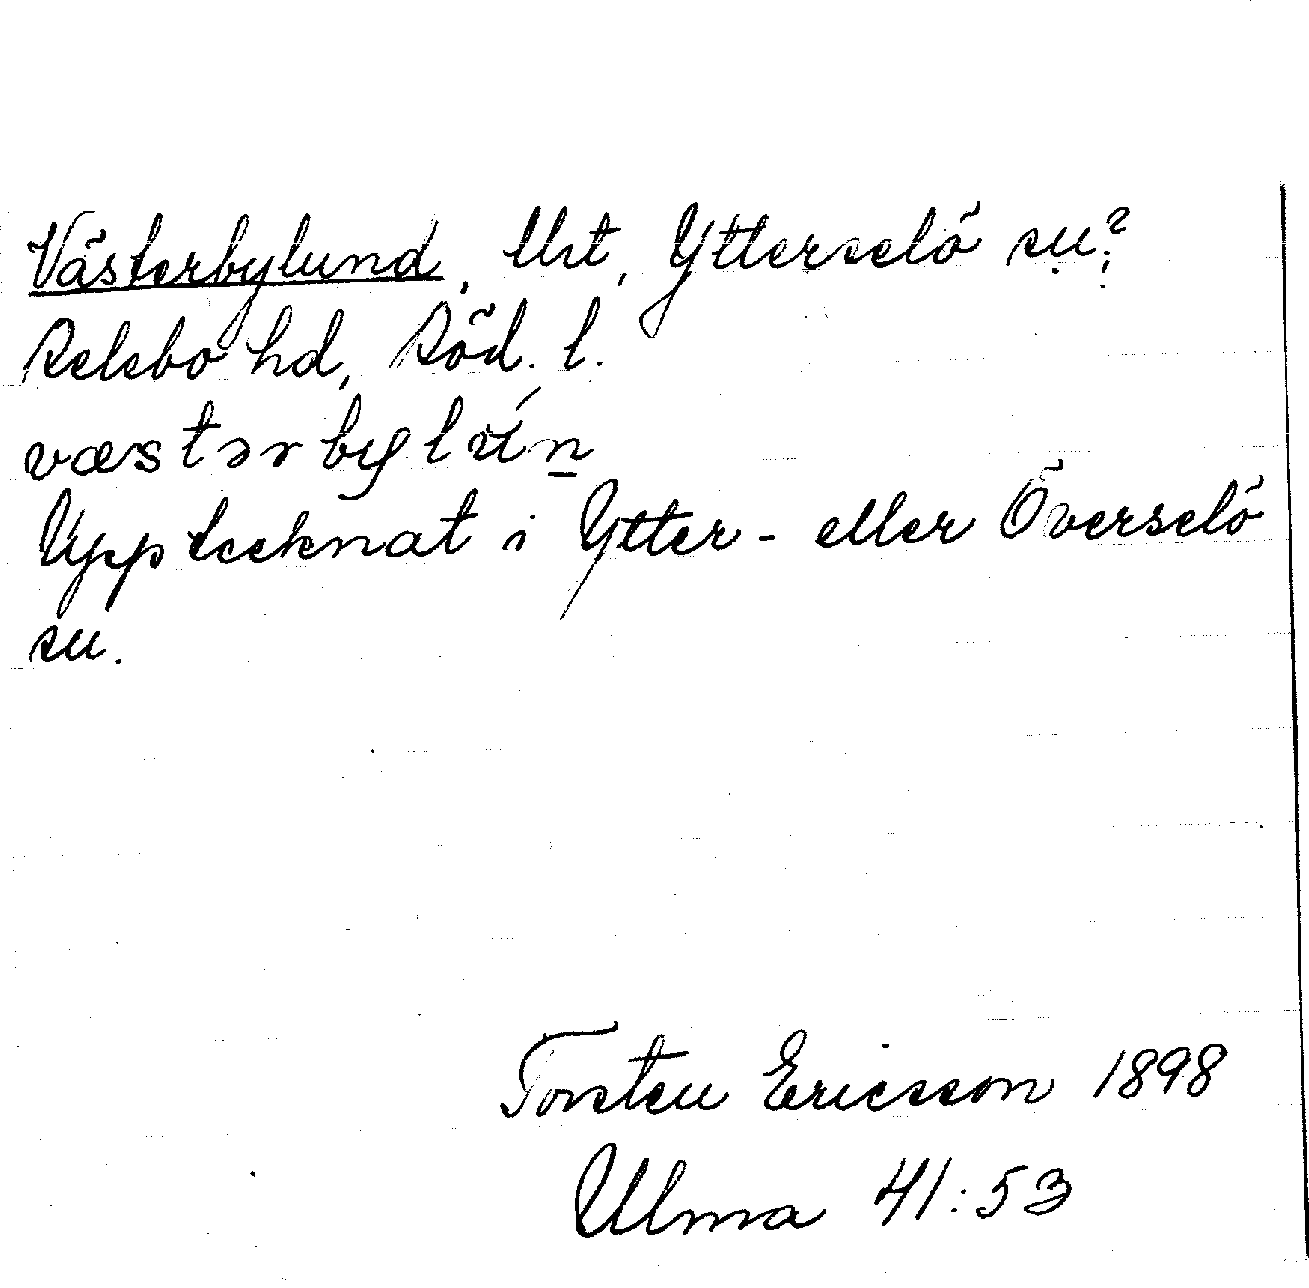 Västerbylund, Utst, Ytterselö sn?
Selebo hd, Söd. l.
væstərbylún
Upptecknat i Ytter- eller Överselö
sn.
Torsten Ericsson 1898
Ulma 41:53